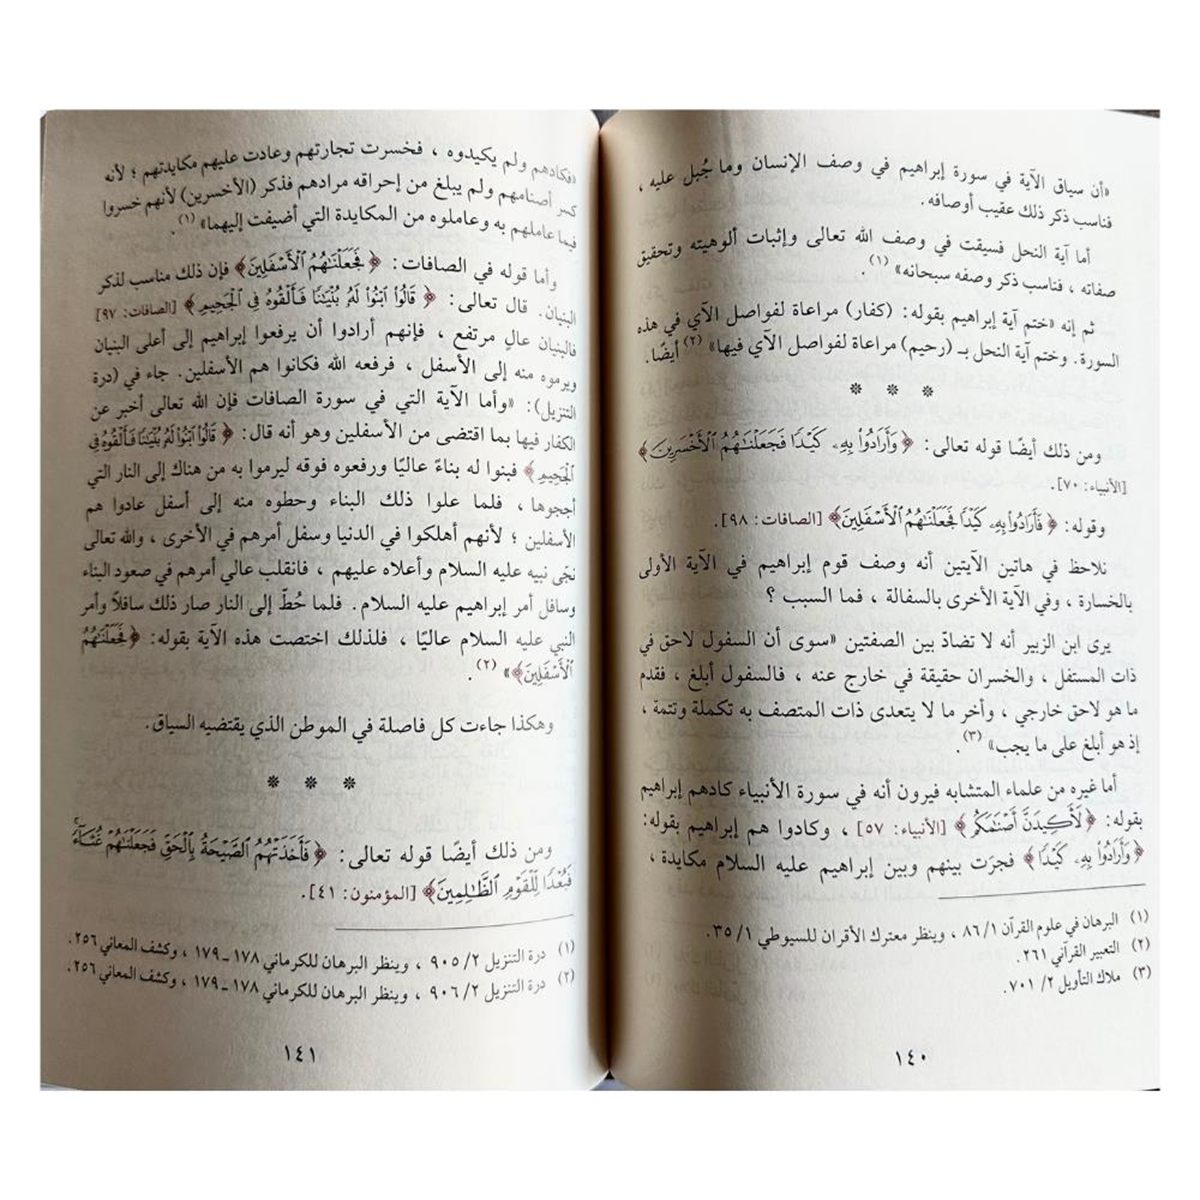 «أن سياق الآية في سورة إبراهيم في وصف الإنسان وما جُبل عليه ،
فناسب ذكر ذلك عقيب أوصافه.
أما آية النحل فسيقت في وصف الله تعالى وإثبات ألوهيته وتحقيق
صفاته ، فناسب ذكر وصفه سبحانه» (١).
ثم إنه «ختم آية إبراهيم بقوله: (كفار) مراعاة لفواصل الآي في هذه
السورة. وختم آية النحل بـ (رحيم) مراعاة لفواصل الآي فيها» (٢) أيضًا.
* * *
ومن ذلك أيضًا قوله تعالى: ﴿وَأَرَادُوا۟ بِهِۦ كَيْدًا فَجَعَلْنَٰهُمُ ٱلْأَخْسَرِينَ﴾
[الأنبياء: ٧٠].
وقوله: ﴿فَأَرَادُوا۟ بِهِۦ كَيْدًا فَجَعَلْنَٰهُمُ ٱلْأَسْفَلِينَ﴾ [الصافات: ٩٨].
نلاحظ في هاتين الآيتين أنه وصف قوم إبراهيم في الآية الأولى
بالخسارة ، وفي الآية الأخرى بالسفالة ، فما السبب ؟
يرى ابن الزبير أنه لا تضادّ بين الصفتين «سوى أن السفول لاحق في
ذات المستفل ، والخسران حقيقة في خارج عنه ، فالسفول أبلغ ، فقدم
ما هو لاحق خارجي ، وأخر ما لا يتعدى ذات المتصف به تكملة وتتمة ،
إذ هو أبلغ على ما يجب» (٣).
أما غيره من علماء المتشابه فيرون أنه في سورة الأنبياء كادهم إبراهيم
بقوله: ﴿لَأَكِيدَنَّ أَصْنَٰمَكُم﴾ [الأنبياء: ٥٧] ، وكادوا هم إبراهيم بقوله:
﴿وَأَرَادُوا۟ بِهِۦ كَيْدًا﴾ فجرَت بينهم وبين إبراهيم عليه السلام مكايدة ،
(١) البرهان في علوم القرآن ١/ ٨٦ ، وينظر معترك الأقران للسيوطي ١/ ٣٥.
(٢) التعبير القرآني ٢٦١.
(٣) ملاك التأويل ٢/ ٧٠١.
١٤٠
«فكادهم ولم يكيدوه ، فخسرت تجارتهم وعادت عليهم مكايدتهم ؛ لأنه
كسر أصنامهم ولم يبلغ من إحراقه مرادهم فذكر (الأخسرين) لأنهم خسروا
فيما عاملهم به وعاملوه من المكايدة التي أضيفت إليهما» (١).
وأما قوله في الصافات: ﴿فَجَعَلْنَٰهُمُ ٱلْأَسْفَلِينَ﴾ فإن ذلك مناسب لذكر
البنيان. قال تعالى: ﴿قَالُوا۟ ٱبْنُوا۟ لَهُۥ بُنْيَٰنًا فَأَلْقُوهُ فِى ٱلْجَحِيمِ﴾ [الصافات: ٩٧]
فالبنيان عالٍ مرتفع ، فإنهم أرادوا أن يرفعوا إبراهيم إلى أعلى البنيان
ويرموه منه إلى الأسفل ، فرفعه الله فكانوا هم الأسفلين. جاء في (درة
التنزيل): «وأما الآية التي في سورة الصافات فإن الله تعالى أخبر عن
الكفار فيها بما اقتضى من الأسفلين وهو أنه قال: ﴿قَالُوا۟ ٱبْنُوا۟ لَهُۥ بُنْيَٰنًا فَأَلْقُوهُ فِى
ٱلْجَحِيمِ﴾ فبنوا له بناءً عاليًا ورفعوه فوقه ليرموا به من هناك إلى النار التي
أججوها ، فلما علوا ذلك البناء وحطوه منه إلى أسفل عادوا هم
الأسفلين ؛ لأنهم أهلكوا في الدنيا وسفل أمرهم في الأخرى ، والله تعالى
نجّى نبيه عليه السلام وأعلاه عليهم ، فانقلب عالي أمرهم في صعود البناء
وسافل أمر إبراهيم عليه السلام. فلما حُطّ إلى النار صار ذلك سافلاً وأمر
النبي عليه السلام عاليًا ، فلذلك اختصت هذه الآية بقوله: ﴿فَجَعَلْنَٰهُمُ
ٱلْأَسْفَلِينَ﴾» (٢).
وهكذا جاءت كل فاصلة في الموطن الذي يقتضيه السياق.
* * *
ومن ذلك أيضًا قوله تعالى: ﴿فَأَخَذَتْهُمُ ٱلصَّيْحَةُ بِٱلْحَقِّ فَجَعَلْنَٰهُمْ غُثَآءً
فَبُعْدًا لِّلْقَوْمِ ٱلظَّٰلِمِينَ﴾ [المؤمنون: ٤١].
(١) درة التنزيل ٢/ ٩٠٥ ، وينظر البرهان للكرماني ١٧٨ ـ ١٧٩ ، وكشف المعاني ٢٥٦.
(٢) درة التنزيل ٢/ ٩٠٦ ، وينظر البرهان للكرماني ١٧٨ ـ ١٧٩ ، وكشف المعاني ٢٥٦.
١٤١